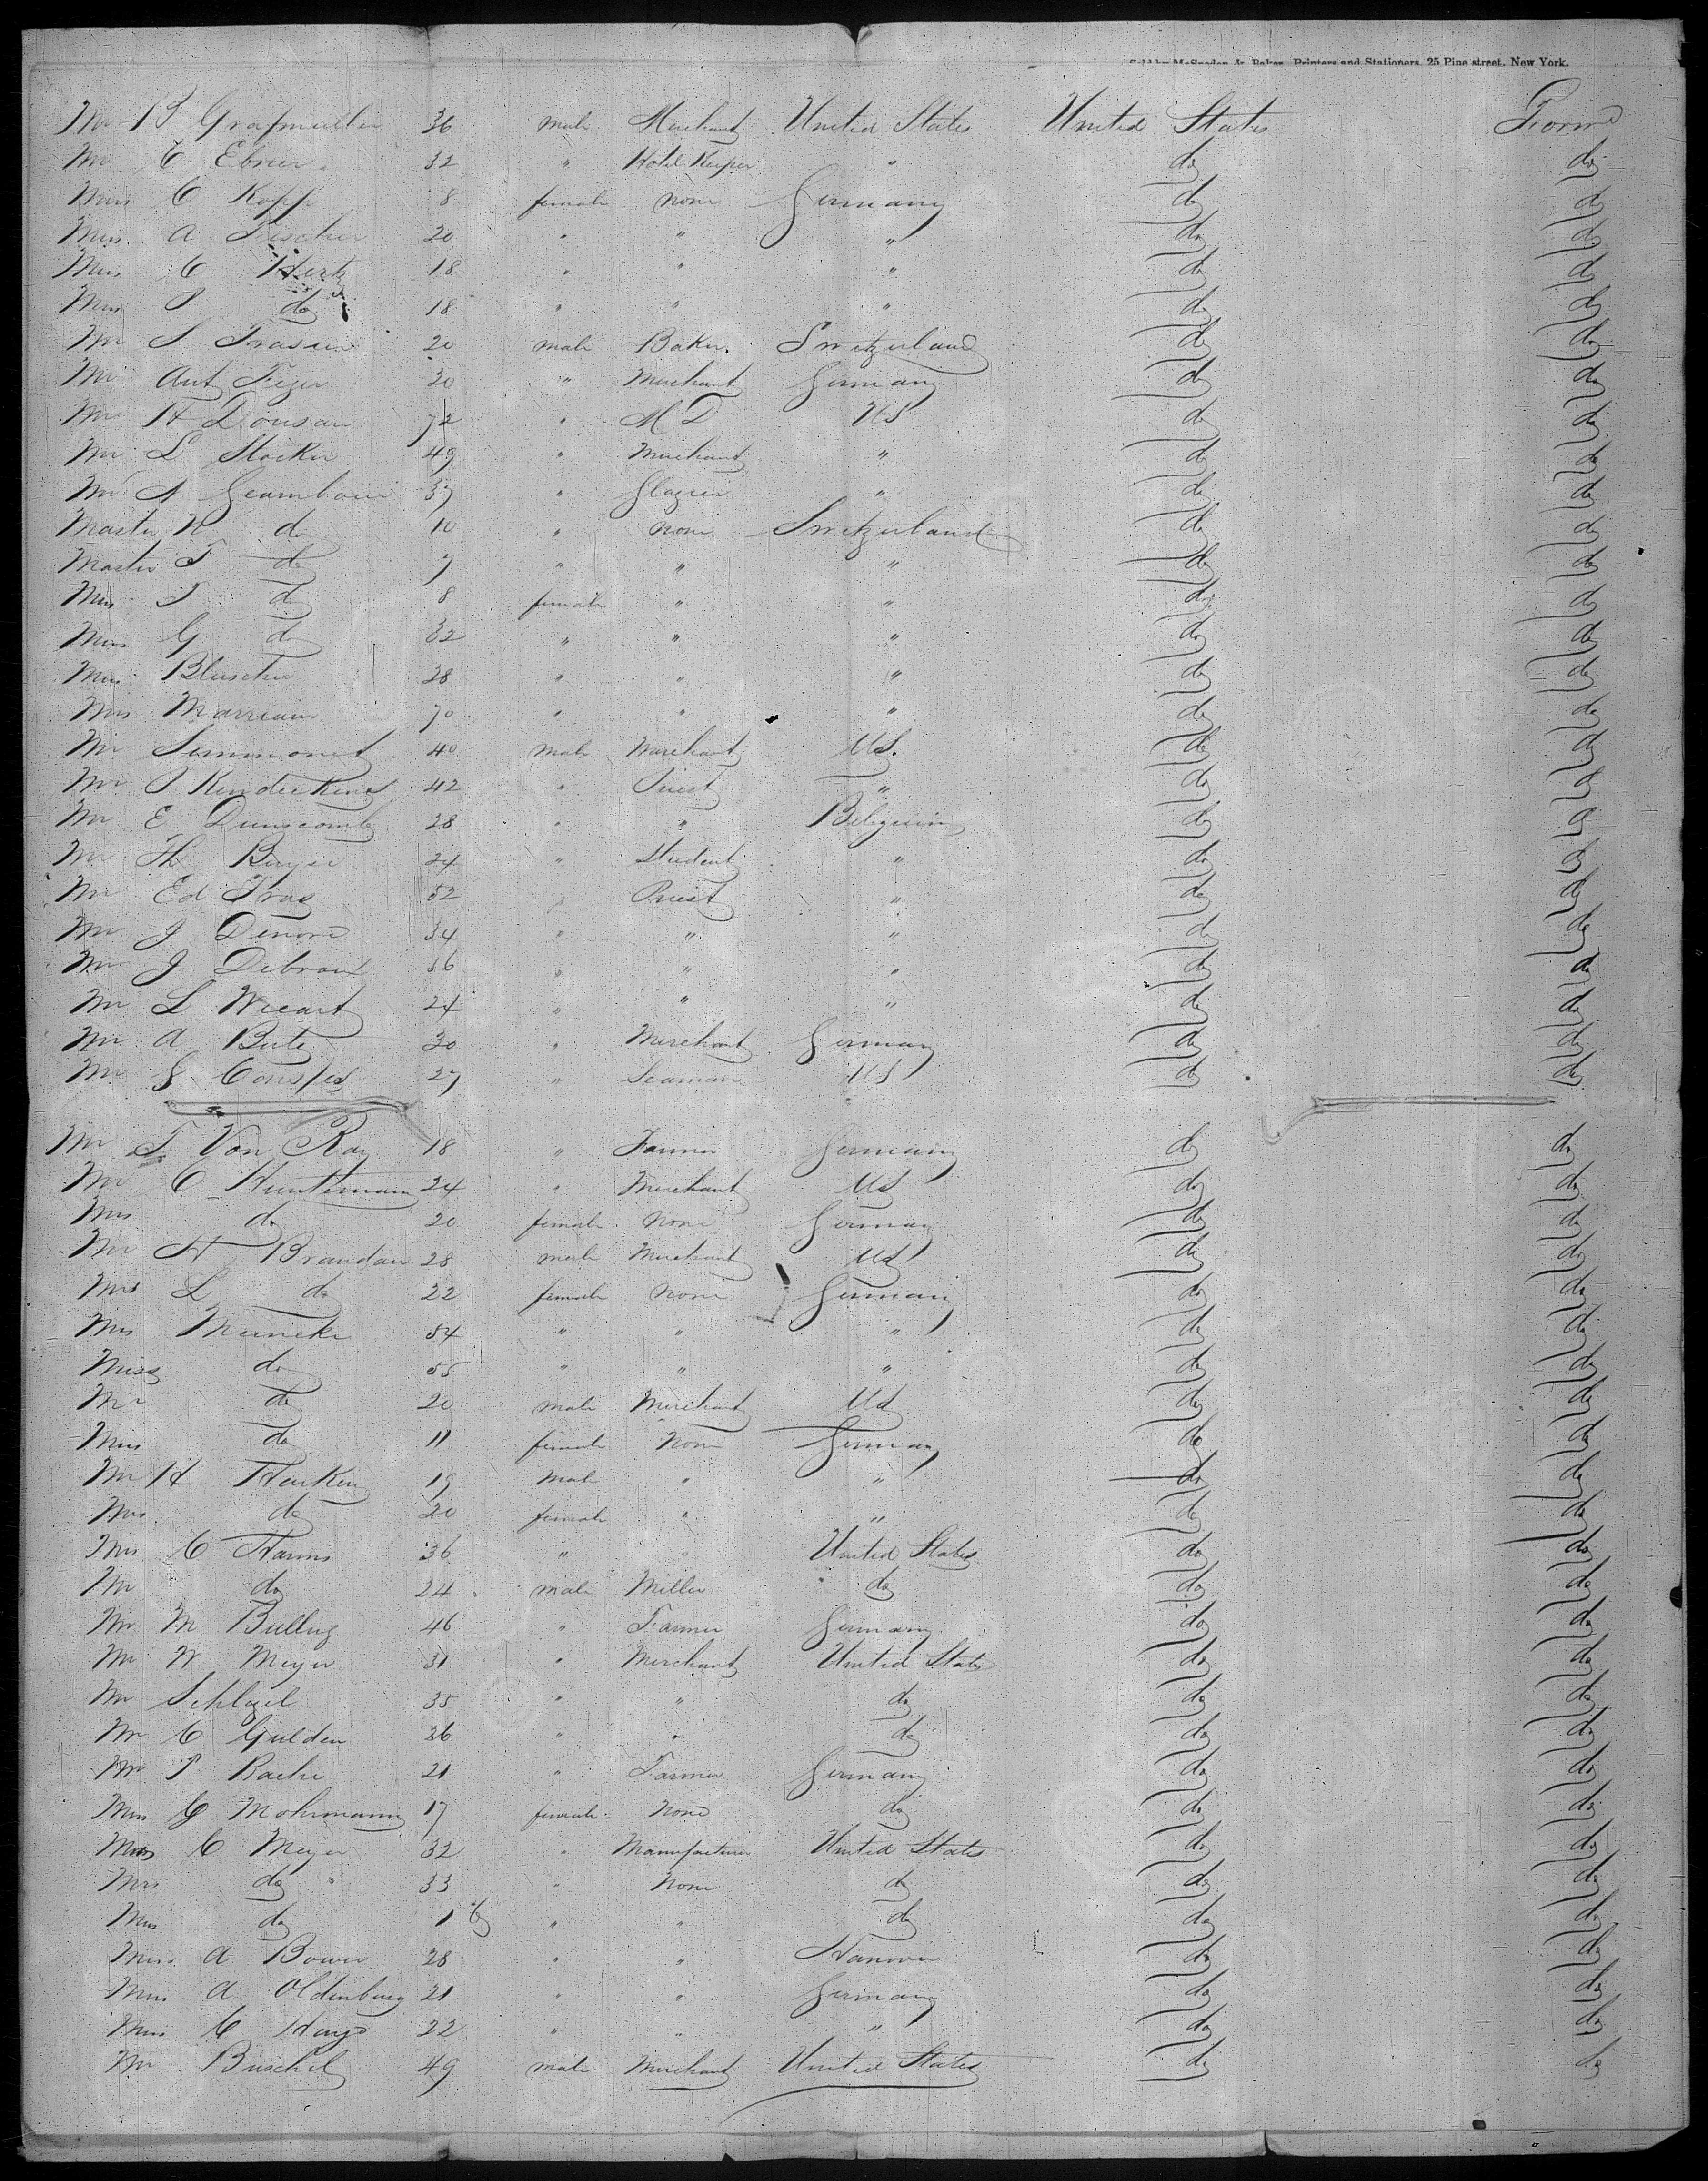 Sold by McSpedon & Baker, Printers and Stationers, 25 Pine street, New York.
Mr B Grafmuller 36 male Merchant United States United States Forw
Mr C Ebner 32 " Hotel Keeper " do do
Miss C Kopp 8 female none Germany do do
Miss A Fischer 20 " " " do do
Miss C Hertz 18 " " " do do
Miss do 18 " " " do do
Mr S 20 male Baker Switzerland do do
Mr Ant Feger 30 " Merchant Germany do do
Mr H Dousan 72 " M D US do do
Mr L Stocker 49 " Merchant " do do
Mr A Geamboni 37 " Glazier " do do
Master N do 10 " none Switzerland do do
Master F do 7 " " " do do
Miss do 8 female " " do do
Mrs G do 32 " " " do do
Mrs Bluscher 28 " " " do do
Mrs Marriam 70 " " " do do
Mr Simmonet 40 male Merchant US. do do
Mr J 42 " Priest " do do
Mr E Dunscomb 28 " " Beligium do do
Mr Th 24 " Student " do do
Mr Ed 52 " Priest " do do
Mr J 34 " " " do do
Mr J Debroux 36 " " " do do
Mr L Wicart 24 " " " do do
Mr A Bute 30 " Merchant Germany do do
Mr G 27 " Seaman US do do
Mr F. Von Ray 18 " Farmer Germany do do
Mr C Huntemann 24 " Merchant US do do
Mrs do 20 female none Germany do do
Mr H Brandau 28 male Merchant US do do
Mrs L do 22 female none Germany do do
Mrs Meincke 54 " " " do do
Miss do 55 " " " do do
Mr do 20 male Merchant US do do
Miss do 11 female None Germany do do
Mr H Harken 19 male " " do do
Mrs do 20 female " " do do
Mrs C Harms 36 " " United States do do
Mr do 24 male Miller do do do
Mr M Bulling 46 " Farmer Germany do do
Mr W Meyer 31 " Merchant United States do do
Mr Schlegel 35 " " do do do
Mr C Gulden 36 " " do do do
Mr Rache 21 " Farmer Germany do do
Miss G Mohrmann 17 female None do do do
C Meyer 32 " Manufacturer United States do do
Mrs do 33 " None do do do
Miss do 1 " " do do do
Miss A Bower 28 " " Hanover do do
Miss A Oldenburg 21 " " Germany do do
Miss C Hays 22 " " " do do
Mr Buschel 49 male Merchant United States do do